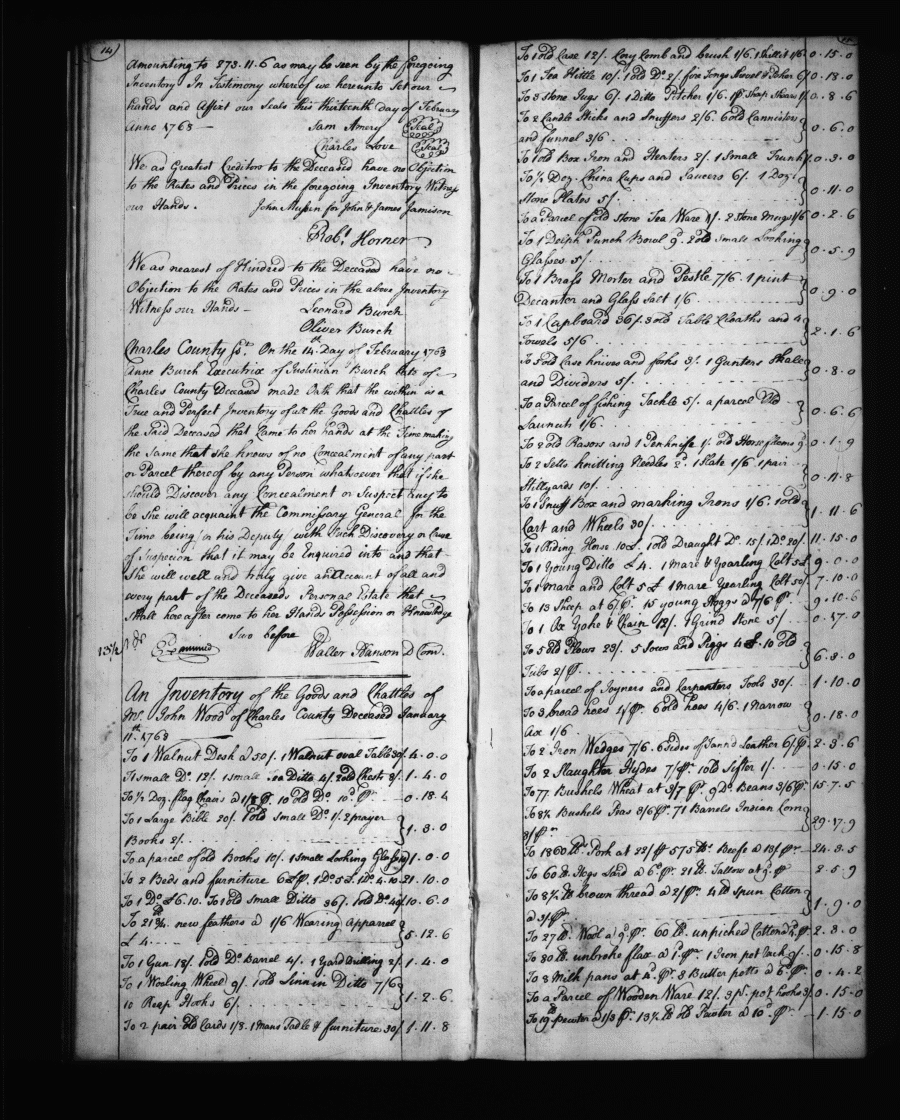 14
Amounting to 273.11.6 as may be seen by the foregoing
Inventory In Testimony whereof we hereunto set our
hands and Affixt our Seals this thirteenth day of February
Anno 1768 Sam Amery Seal
Charles Love Seal
We as Greatest Creditors to the Deceased have no Objection
to the Rates and Prices in the foregoing Inventory Witness
our Hands. John for John & James Jamison
Robt. Horner
We as nearest of Kindred to the Deceased have no
Objection to the Rates and Prices in the above Inventory
Witness our Hands Leonard Burch
Oliver Burch
Charles County Sst. On the 14th. Day of February 1768
Anne Burch Executrix of Justinian Burch late of
Charles County Deceased made Oath that the within is a
True and Perfect Inventory of all the Goods and Chattles of
the said Deceased that Came to her hands at the Time making
the Same that she knows of no Concealment of any part
or Parcel thereof by any Person whatsoever that if she
should Discover any Concealment or Suspect any to
be she will acquaint the Commissary General for the
Time being or his Deputy with Such Discovery or Cause
of Suspicion that it may be Enquired into and that
She will well and truly give an Account of all and
every part of the Deceaseds Personal Estate that
shall here after come to her Hands Possession or Knowledge
before
Examined Walter Hanson D Com.
An Inventory of the Goods and Chattles of
Mr. John Wood of Charles County Deceased January
11th. 1768
To 1 Walnut Desk a 50/. 1 Walnut oval Table 30/. 4.0.0
To 1 small Do. 12/. 1 small Ditto 4/. 2 old Chests 8/. 1.4.0
To 1/2 Doz. flag Chairs a 1/8 P. 10 old Do. 10d. P. 0.18.4
To 1 Large Bible 20/. 1 old small Do. 1/. 2 prayer
Books 2/. 1.3.0
To a parcel of old Books 10/. 1 Small Looking Glass 10/ 1.0.0
To 2 Beds and furniture 6£ P. 1 Do. 5£. 1 Do. 4.10. 21.10.0
To 1 Do. £6.10. To 1 old Small Ditto 36/. 1 old Do. 40/ 10.6.0
To 21 3/4 lb. new feathers a 1/6 Wearing Apparrel
£4 5.12.6
To 1 Gun 18/. 1 old Do. Barrel 4/. 1 Yard 2/. 1.4.0
To 1 Wooling Wheel 9/. 1 old Linnin Ditto 7/6
10 Reap Hooks 6/. 1.2.6
To 2 pair old Cards 1/8. 1 Mans Sadle & furniture 30/ 1.11.8
To 1 old Case 12/. Corn Comb and brush 1/6. 1 Skillit 1/6 0.15.0
To 1 Tea Kittle 10/. 1 old Do. 2/. fire Tongs Shovel & Poker 6/ 0.18.0
To 3 stone Jugs 6/. 1 Ditto Pitcher 1/6. 1 pr. Sheep Shears 1/ 0.8.6
To 2 Candle Sticks and Snuffers 2/6. 6 old Cannisters
and funnel 3/6 0.6.0
To 1 old Box Iron and Heaters 2/. 1 Small Trunk 1/. 0.3.0
To 1/2 Doz. China Cups and Saucers 6/. 1 Doz.
Stone Plates 5/. 0.11.0
To a Parcel of old Stone Tea Ware 1/. 2 Stone Mugs 1/6 0.2.6
To 1 Delph Punch Bowl 9d. 2 old small Looking
Glasses 5/. 0.5.9
To 1 Brass Morter and Pestle 7/6. 1 pint
Decanter and Glass Salt 1/6 0.9.0
To 1 Cupboard 36/. 3 old Table Cloaths and 4
Towels 5/6 2.1.6
To 5 old Case knives and forks 3/. 1 Gunters Skale
and Dividers 5/. 0.8.0
To a Parcel of fishing Tackle 5/. a parcel Old
1/6. 0.6.6
To 2 old Rasors and 1 Penknife 1/. old Horse fleams 9d. 0.1.9
To 2 Setts knitting Needles 2d. 1 Slate 1/6. 1 pair
Stillyards 10/. 0.11.8
To 1 Snuff Box and marking Irons 1/6. 1 old
Cart and Wheels 30/. 1.11.6
To 1 Riding Horse 10£. 1 old Draught Do. 15/. 1 Do. 20/. 11.15.0
To 1 Young Ditto £4. 1 Mare & Yearling Colt 5£ 9.0.0
To 1 Mare and Colt 5£ 1 Mare Yearling Colt 50/. 7.10.0
To 13 Sheep at 6/ P. 15 young Hoggs a 7/6 P. 9.10.6
To 1 Ox Yoke & Chain 12/. 1 Grind Stone 5/. 0.17.0
To 5 old Plows 23/. 5 Sows and Piggs 4£. 10 old
Tubs 2/ P. 6.3.0
To a parcel of Joyners and Carpenters Tools 30/. 1.10.0
To 3 broad hoes 4/ P. 6 old hoes 4/6. 1 Narrow
Axe 1/6 0.18.0
To 2 Iron Wedges 7/6. 6 Sides of Tann'd Leather 6/ P. 2.3.6
To 2 Slaughter Hydes 7/ P. 1 old Sifter 1/. 0.15.0
To 77 Bushels Wheat at 3/7 P. 9 Do. Beans 3/6 P. 15.7.5
To 8 1/2 Bushels Peas 3/6 P. 71 Barrels Indian Corn
8/ P. 29.17.9
To 1860 lb. Pork at 22/ P 575 lb. Beef a 13/ P. 24.3.5
To 60 lb. Hogs Lard a 6d. P. 21 lb. Tallow at 9d. P 2.5.9
To 8 1/2 lb brown thread a 2/ P. 4 lb Spun Cotton
a 3/ P. 1.9.0
To 27 lb. Wool a 9d. P. 60 lb. unpicked Cotton P. 2.8.0
To 80 lb. unbroke flax a P. 1 Iron pot 0.15.8
To 8 Milk pans at 4d. P. 3 Butter potts a 6d. P. 0.4.2
To a Parcel of Wooden Ware 12/. 3 pr. pot hooks 3/. 0.15.0
To 19 lb pewter a 1/3 P. 13 1/2 lb old Pewter a 10d. P. 1.15.0